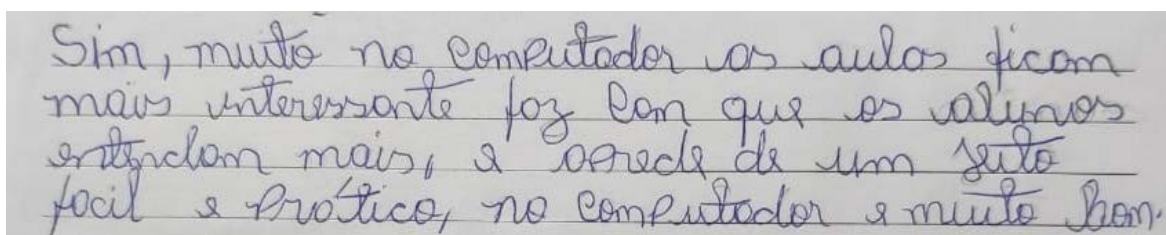 Sim, muito no computador as aulas ficam
mais interessante faz com que os alunos
entendam mais, e aprede de um jeito
facil e prático, no computador e muito bom.